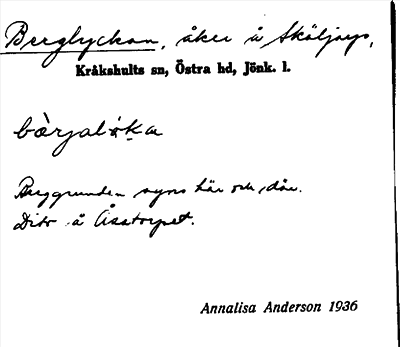 Berglyckan, åker å Sköljarp,
Kråkshults sn, Östra hd, Jönk. l.
bærjalɩka
Berggrunden syns här och där.
Dito å Åsstorpet.
Annalisa Anderson 1936